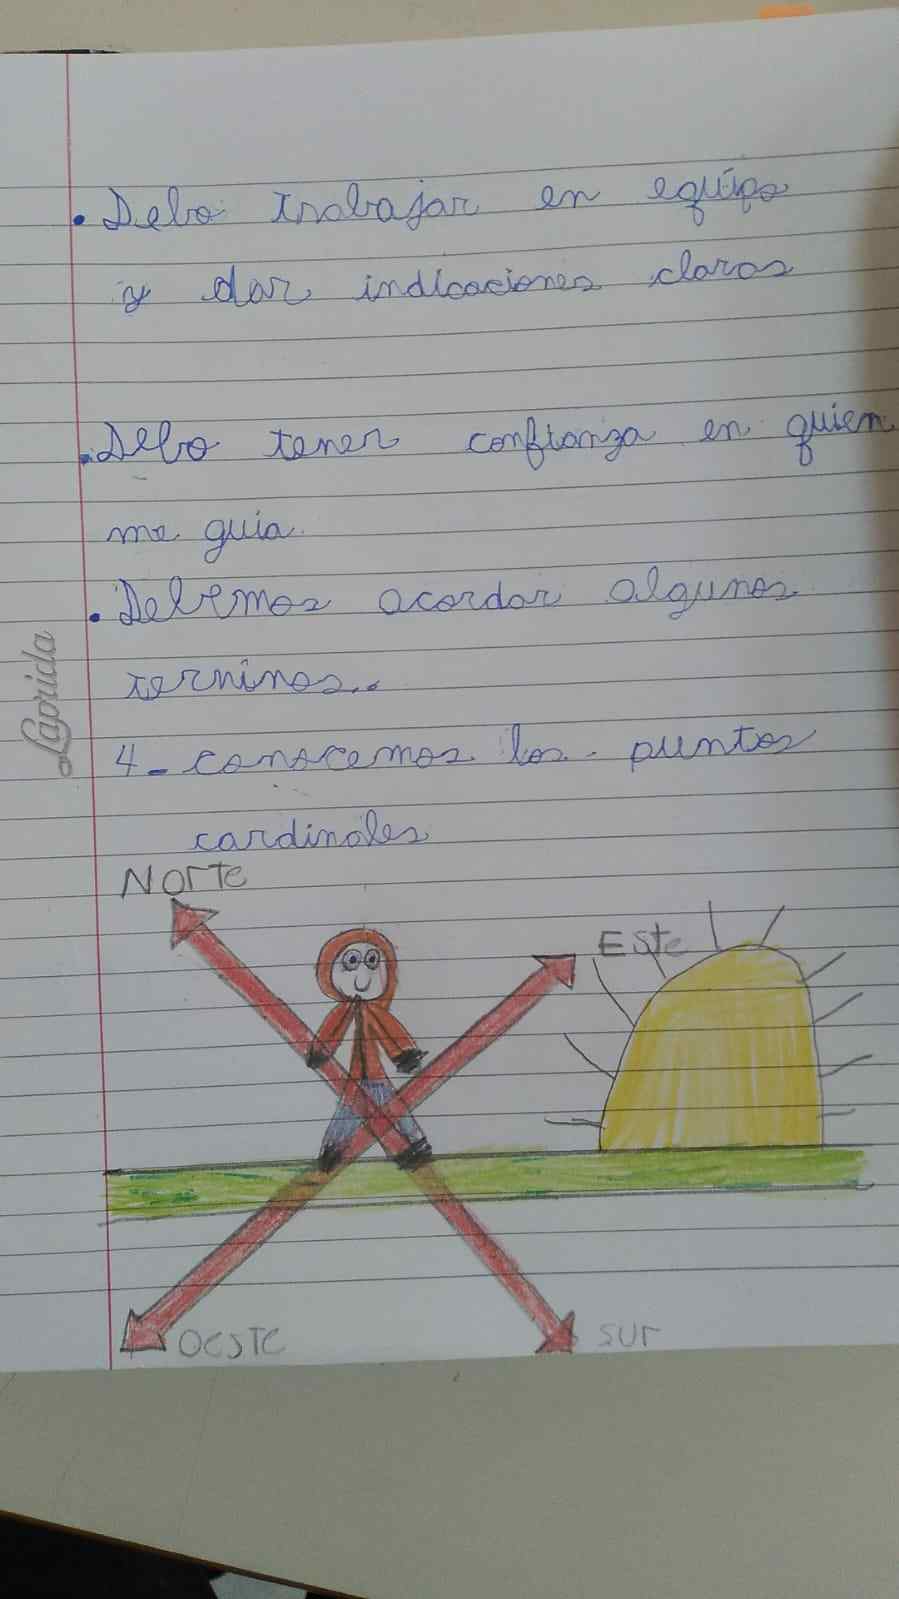 . Debo trabajar en equipo
y dar indicaciones claras
. Debo tener confianza en quien
me guia.
. Debemos acordar algunos
terminos..
Laprida
4- conocemos los puntos
cardinales
Norte
Este
OESTE
SUR